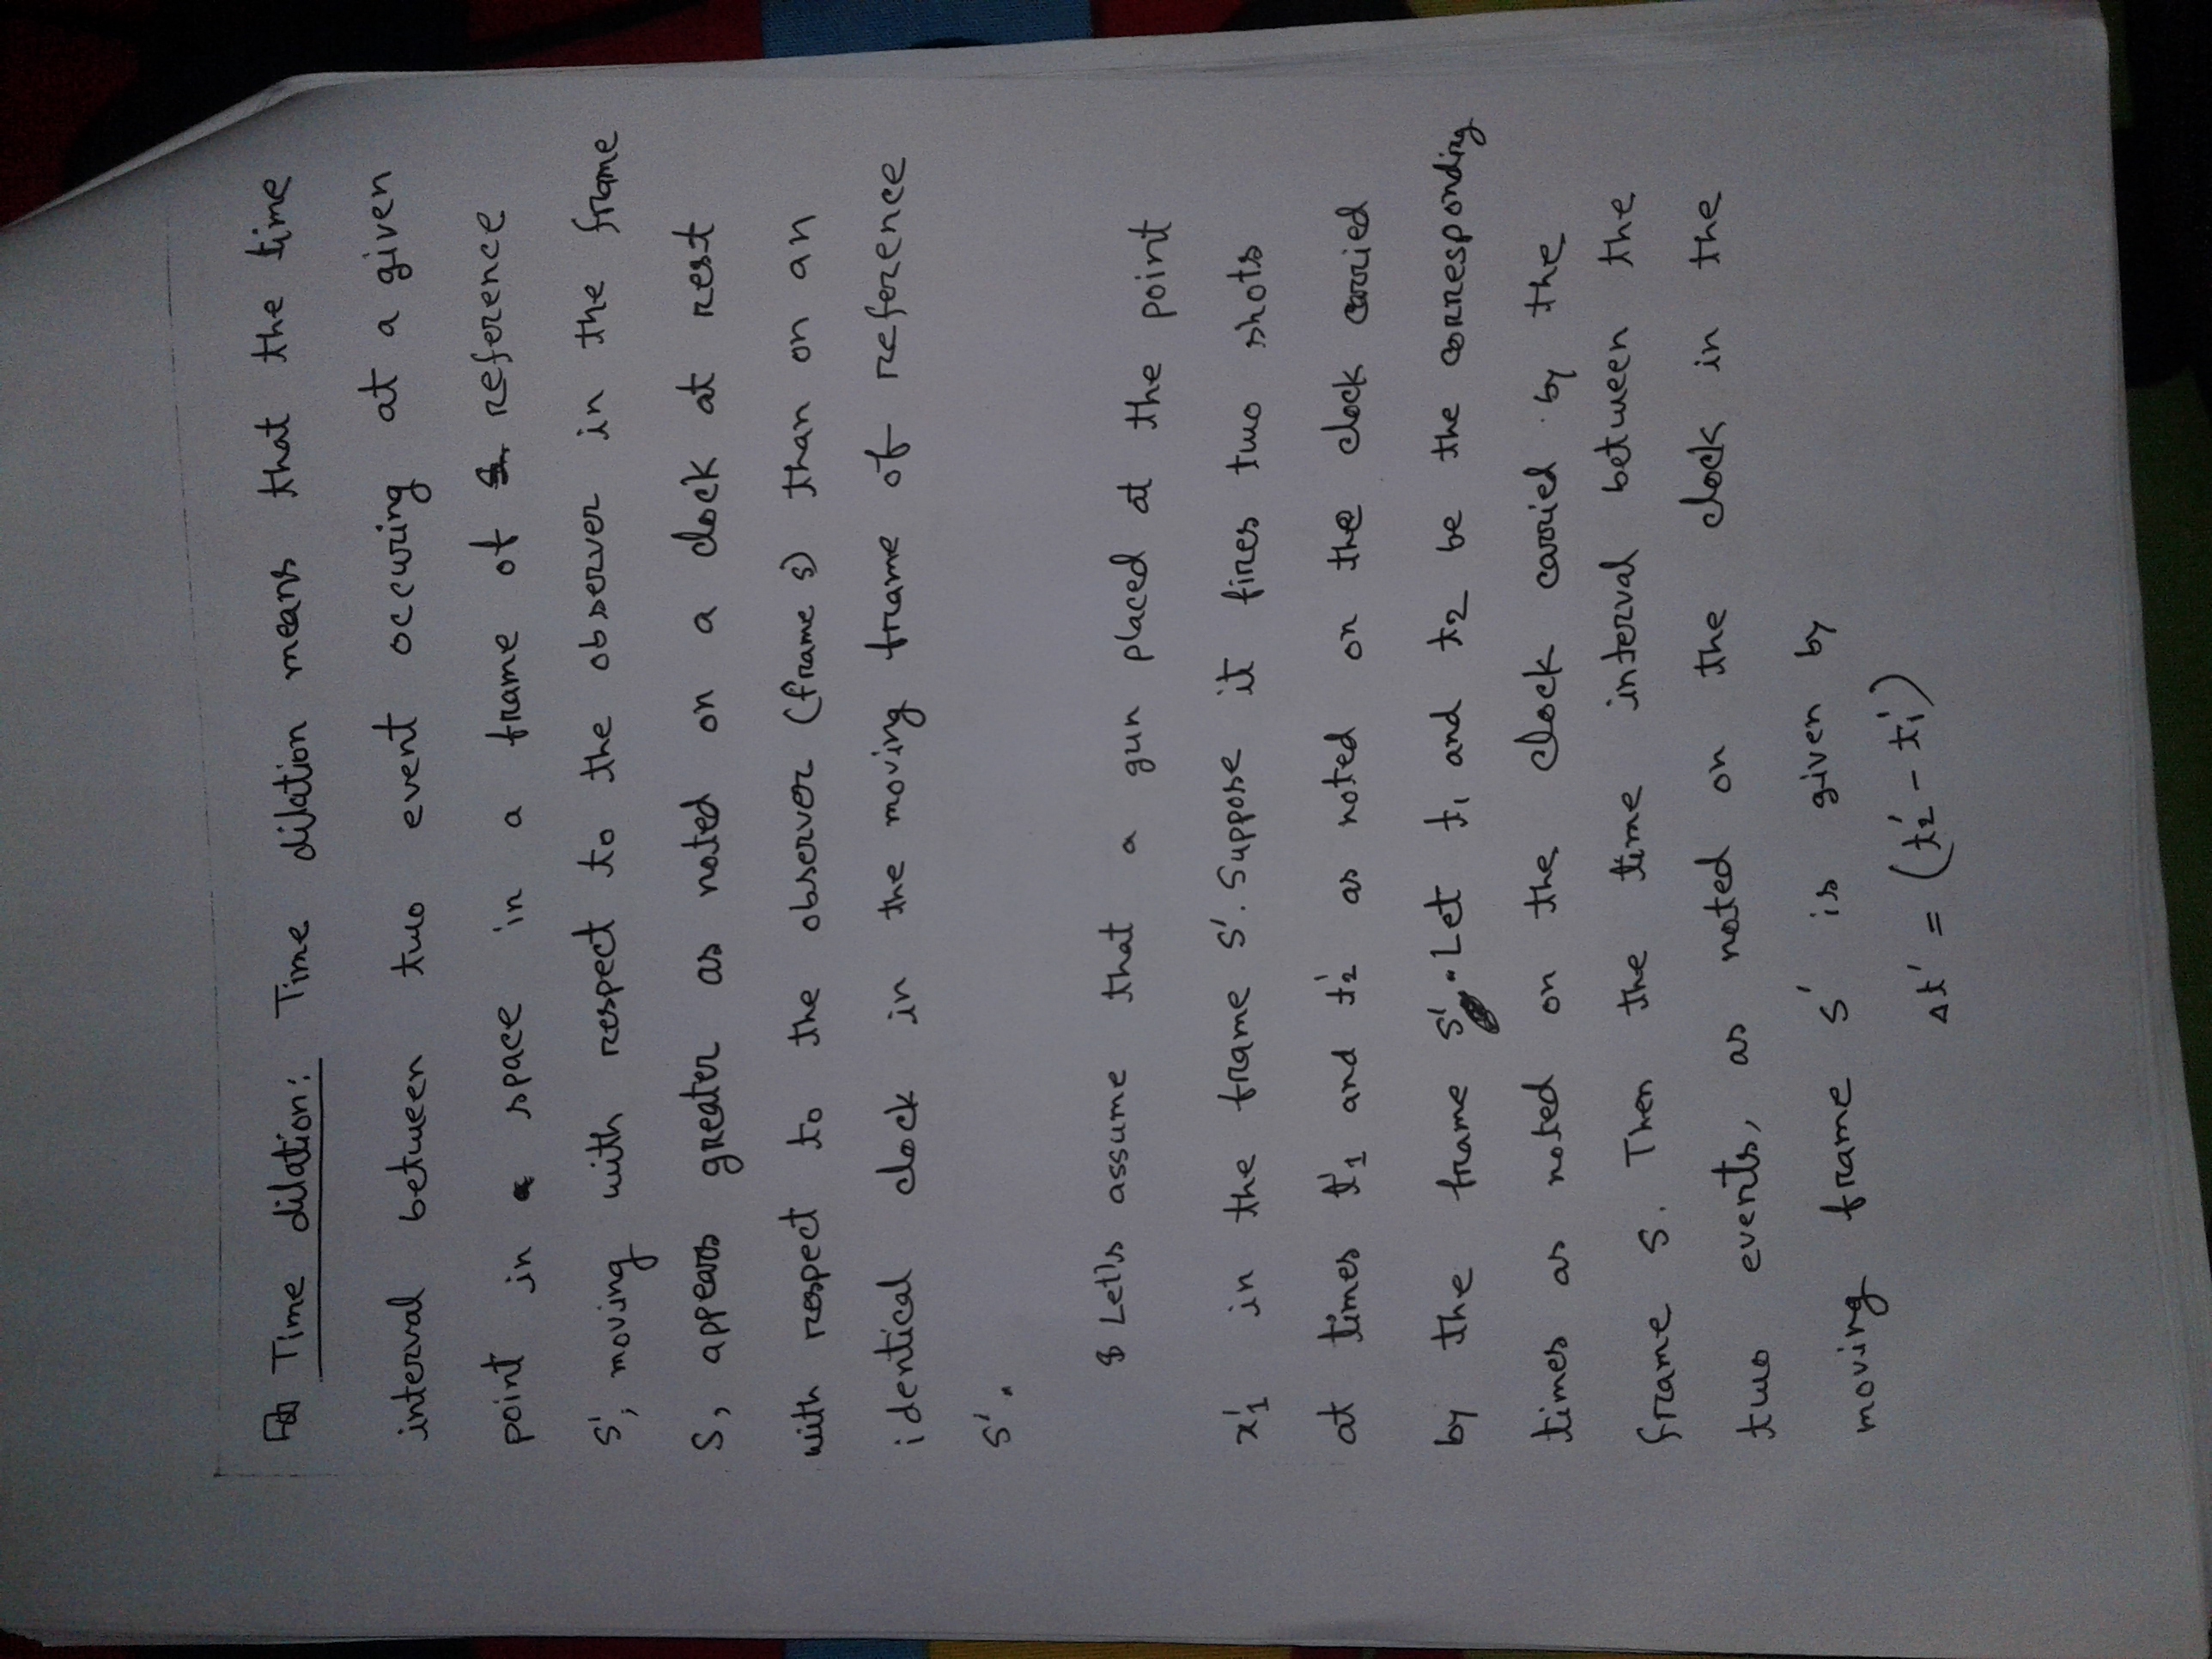 Time dilation: Time dilation means that the time
interval between two event occuring at a given
point in space in a frame of reference
S', moving with respect to the observer in the frame
S, appears greater as noted on a clock at rest
with respect to the observer (frame S) than on an
identical clock in the moving frame of reference
S'.
Let's assume that a gun placed at the point
x'₁ in the frame S'. Suppose it fires two shots
at times t'₁ and t'₂ as noted on the clock carried
by the frame S'. Let t₁ and t₂ be the corresponding
times as noted on the clock carried by the
frame S. Then the time interval between the
two events, as noted on the clock in the
moving frame S' is given by
Δt' = (t'₂ - t'₁)